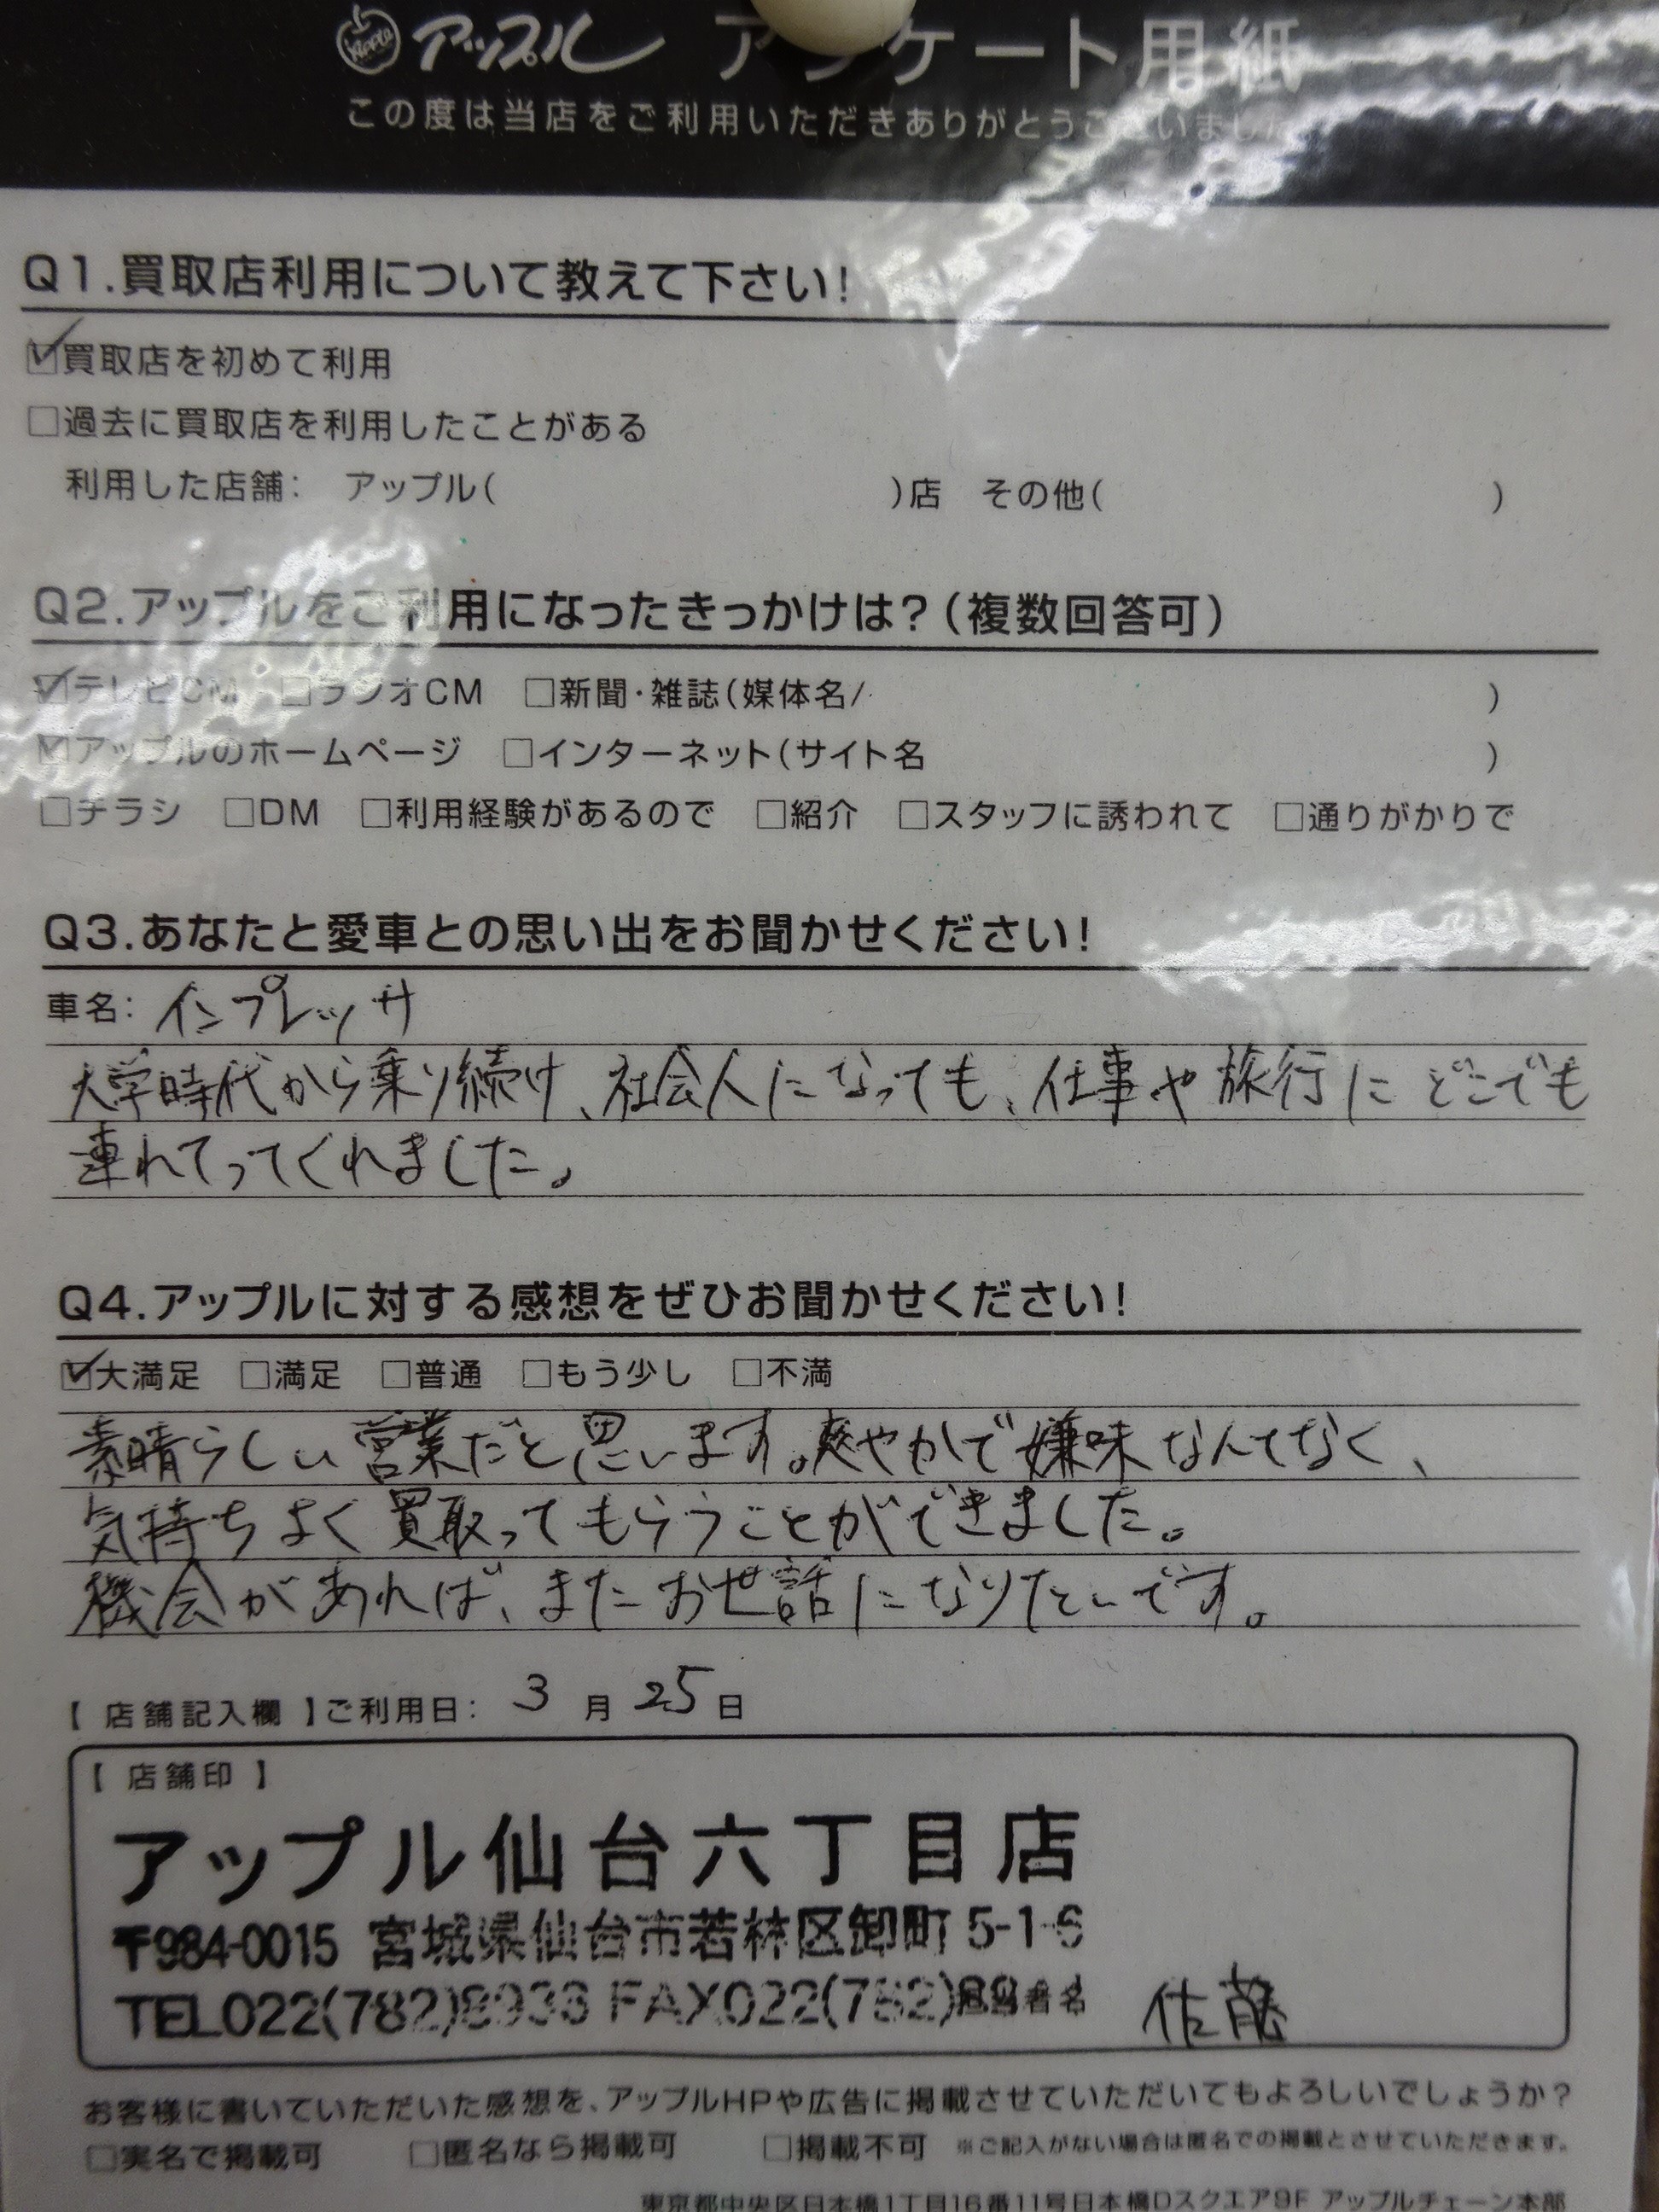 Apple アップル アンケート用紙
この度は当店をご利用いただきありがとうございました
Q1.買取店利用について教えて下さい!
☑買取店を初めて利用
□過去に買取店を利用したことがある
利用した店舗: アップル( )店 その他( )
Q2.アップルをご利用になったきっかけは?(複数回答可)
☑テレビCM □ラジオCM □新聞・雑誌(媒体名/ )
☑アップルのホームページ □インターネット(サイト名 )
□チラシ □DM □利用経験があるので □紹介 □スタッフに誘われて □通りがかりで
Q3.あなたと愛車との思い出をお聞かせください!
車名: インプレッサ
大学時代から乗り続け、社会人になっても、仕事や旅行にどこでも
連れてってくれました。
Q4.アップルに対する感想をぜひお聞かせください!
☑大満足 □満足 □普通 □もう少し □不満
素晴らしい営業だと思います。爽やかで嫌味なんてなく、
気持ちよく買取ってもらうことができました。
機会があれば、またお世話になりたいです。
【 店舗記入欄 】ご利用日: 3 月 25 日
【 店舗印 】
アップル仙台六丁目店
〒984-0015 宮城県仙台市若林区卸町 5-1-6
TEL022(782)8933 FAX022(782) 担当者名 佐藤
お客様に書いていただいた感想を、アップルHPや広告に掲載させていただいてもよろしいでしょうか?
□実名で掲載可 □匿名なら掲載可 □掲載不可 ※ご記入がない場合は匿名での掲載とさせていただきます。
東京都中央区日本橋1丁目16番11号日本橋Dスクエア9F アップルチェーン本部